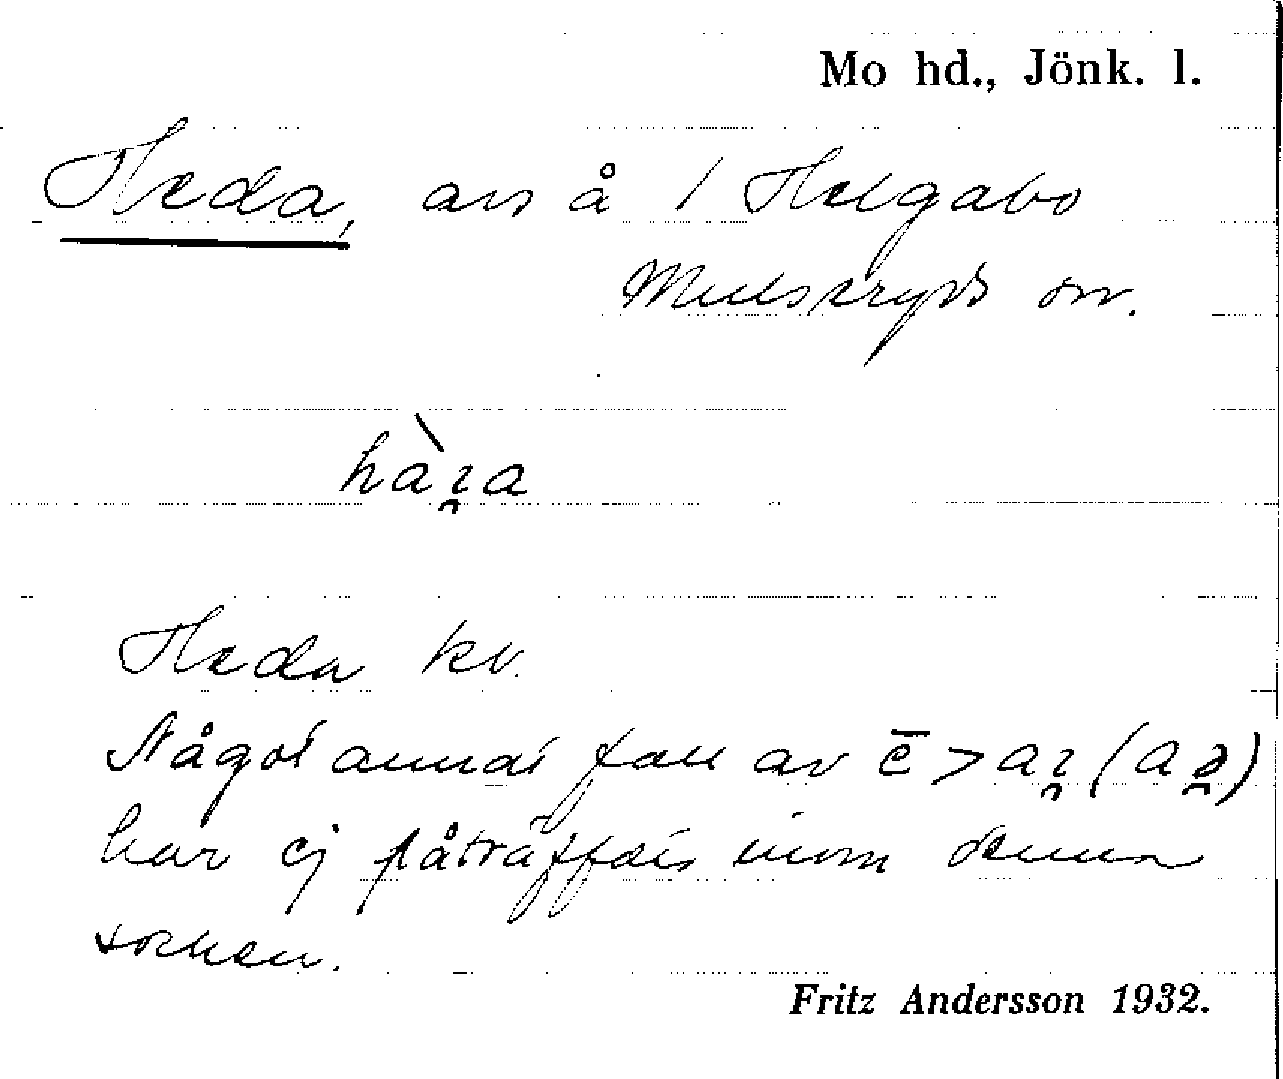 Mo hd., Jönk. l.
Heda, avs å / Helgabo
Mulseryds sn.
Heda kv.
Något annat fall av ē > aı̯ (aə̯)
har ej påträffats inom denna
socken.
Fritz Andersson 1932.